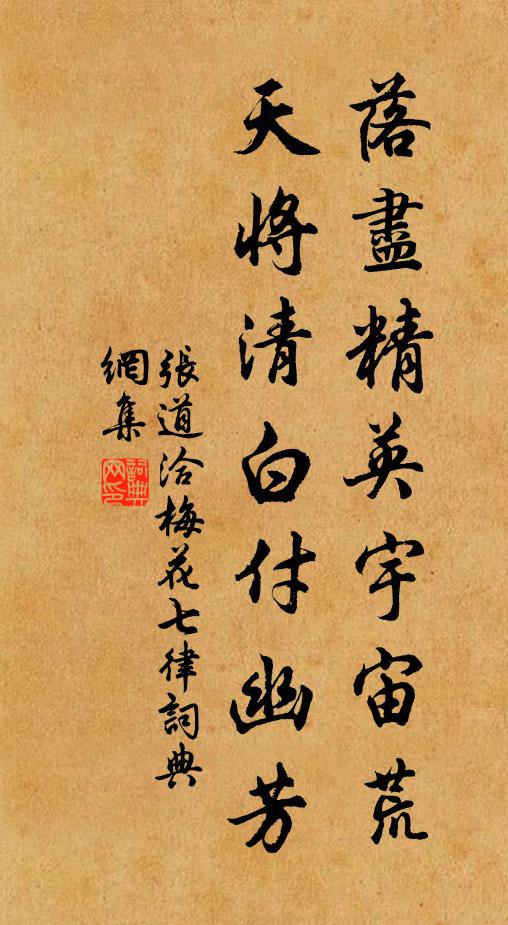 落盡精英宇宙荒
天將清白付幽芳
張道洽梅花七律詞典
網集
詞典
网印